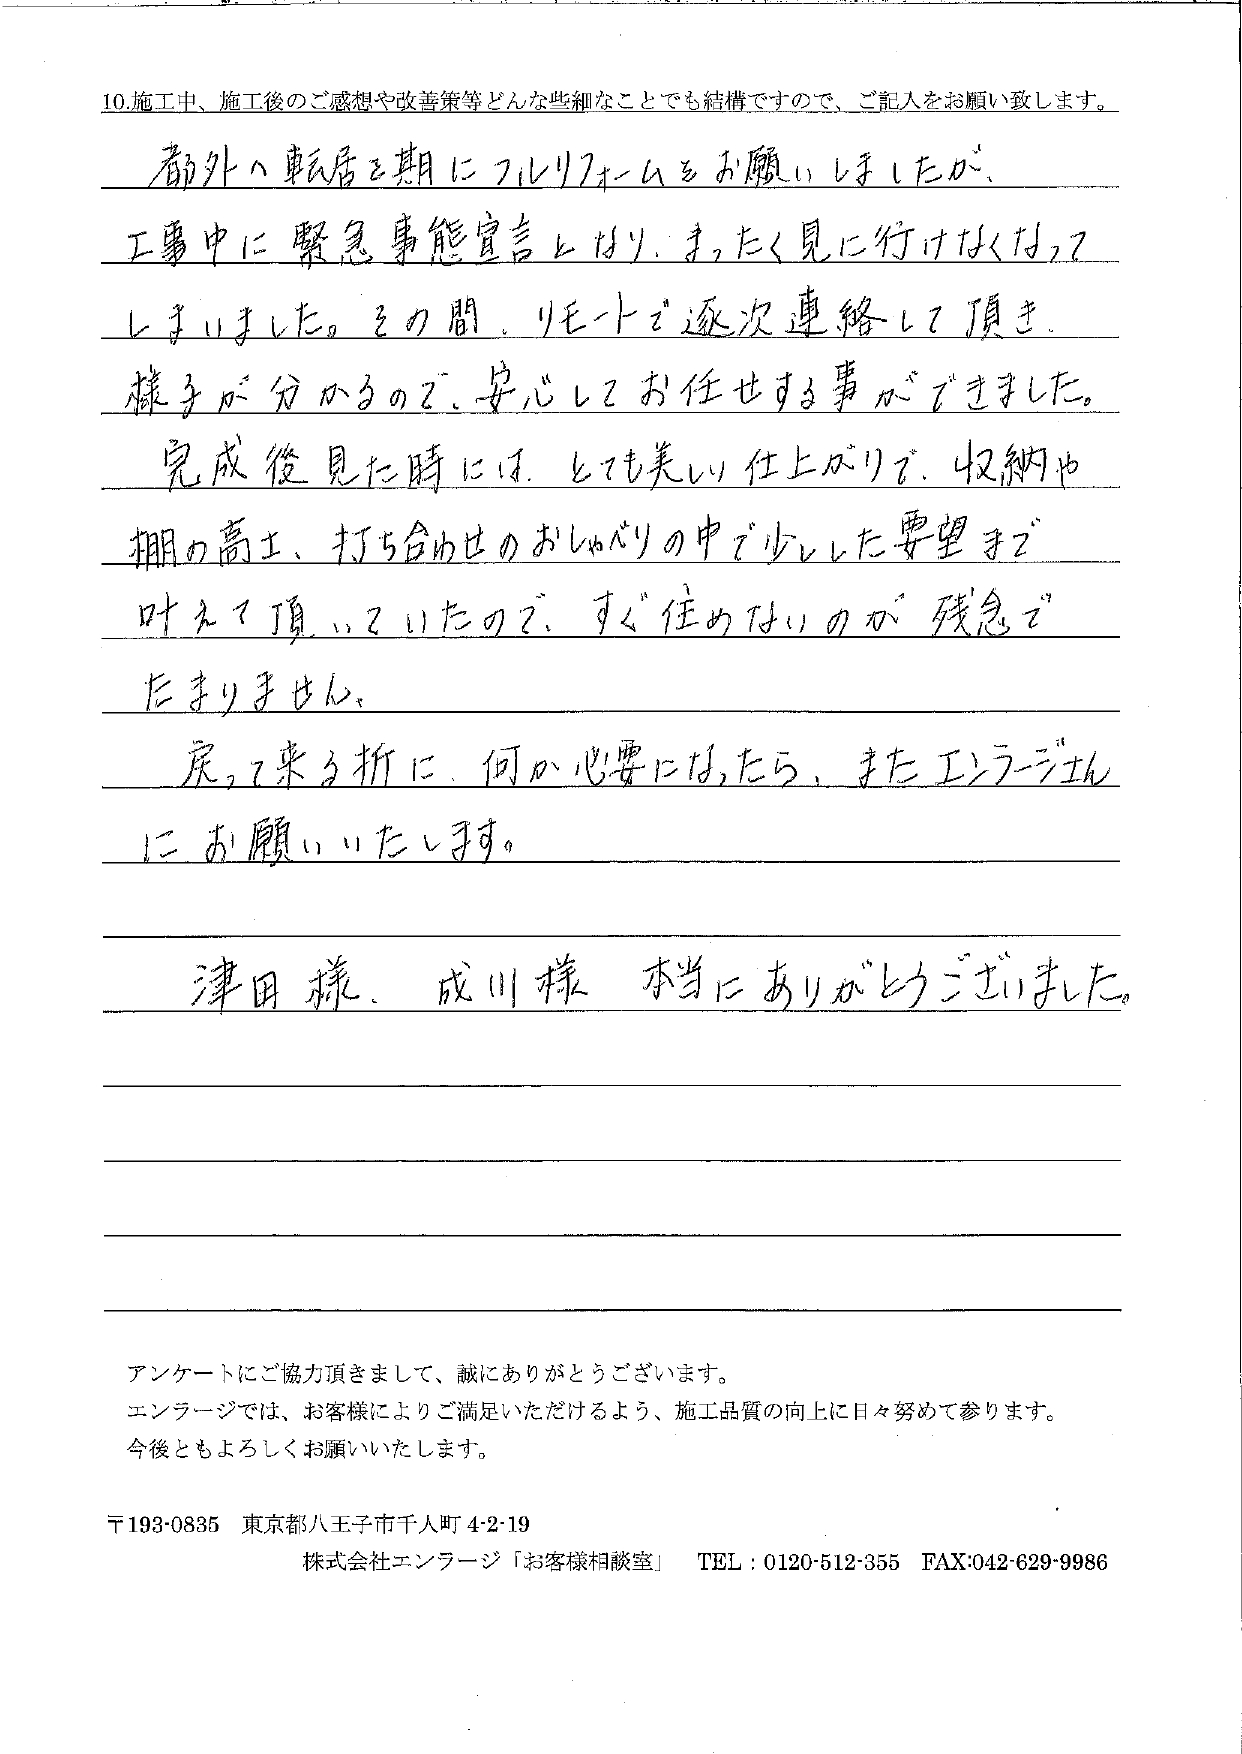 10.施工中、施工後のご感想や改善策等どんな些細なことでも結構ですので、ご記入をお願い致します。
都外へ転居を期にフルリフォームをお願いしましたが、
工事中に緊急事態宣言となり、まったく見に行けなくなって
しまいました。その間、リモートで逐次連絡して頂き、
様子が分かるので、安心してお任せする事ができました。
完成後見た時には、とても美しい仕上がりで、収納や
棚の高さ、打ち合わせのおしゃべりの中で少しした要望まで
叶えて頂いていたので、すぐ住めないのが残念で
たまりません。
戻って来る折に、何か必要になったら、またエンラージさん
にお願いいたします。
津田様、成川様 本当にありがとうございました。
アンケートにご協力頂きまして、誠にありがとうございます。
エンラージでは、お客様によりご満足いただけるよう、施工品質の向上に日々努めて参ります。
今後ともよろしくお願いいたします。
〒193-0835 東京都八王子市千人町 4-2-19
株式会社エンラージ「お客様相談室」 TEL:0120-512-355 FAX:042-629-9986